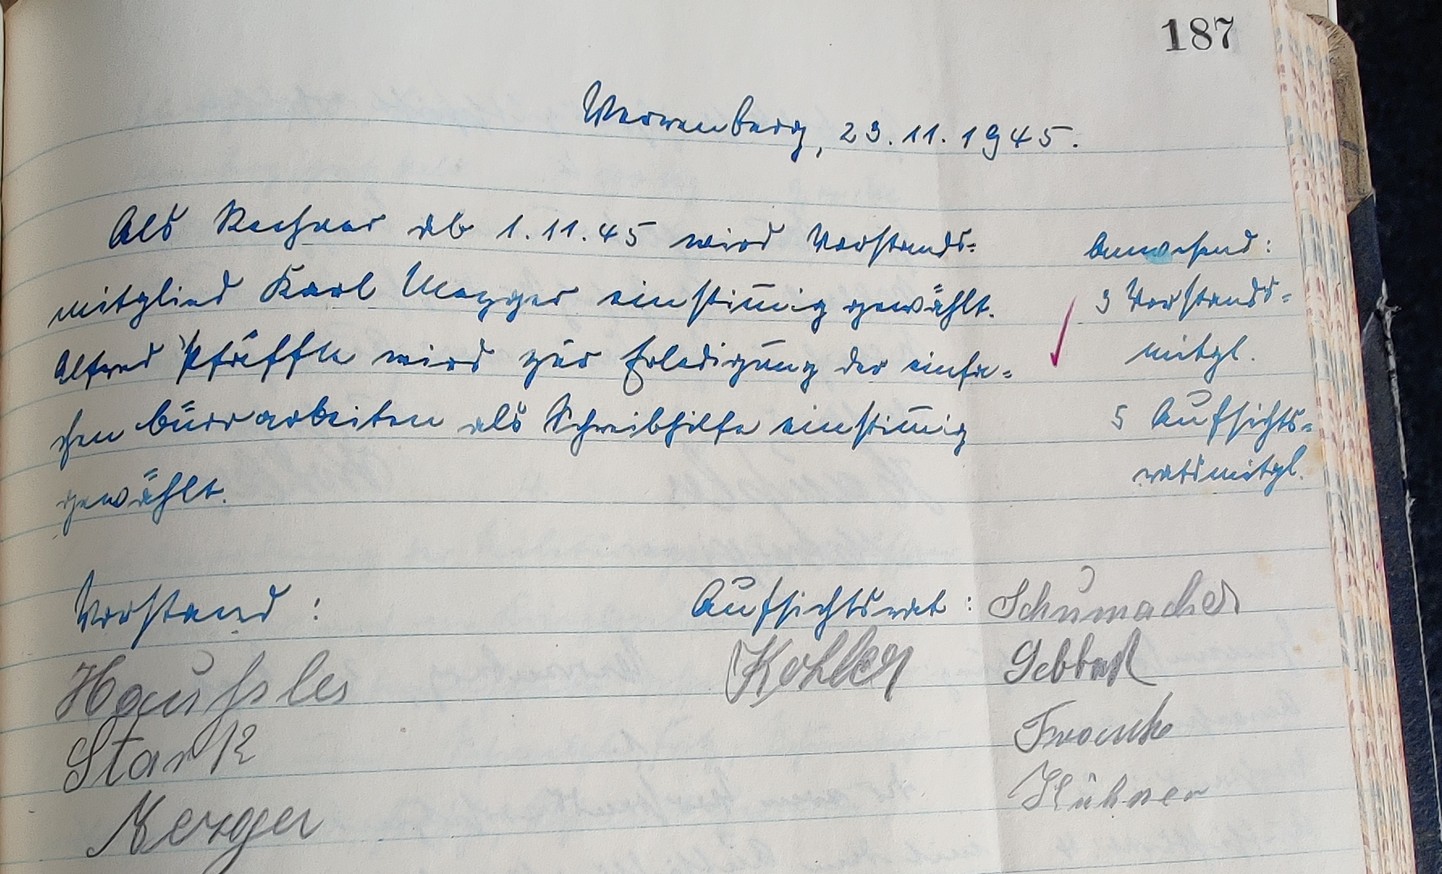 187
Wervenberg, 23.11.1945.
Als Rechner ab 1.11.45 wird Vorstands=
mitglied Karl Mezger einstim̅ig gewählt.
Alfred Pfäffle wird zur Erledigung der einfa=
chen Büroarbeiten als Schreibhilfe einstim̅ig
gewählt.
Anwesend:
3 Vorstands=
mitgl.
5 Aufsichts=
ratsmitgl.
Vorstand:
Häussler
Stark
Mezger
Aufsichtsrat: Schumacher
Kohler
Gebhard
Kühner